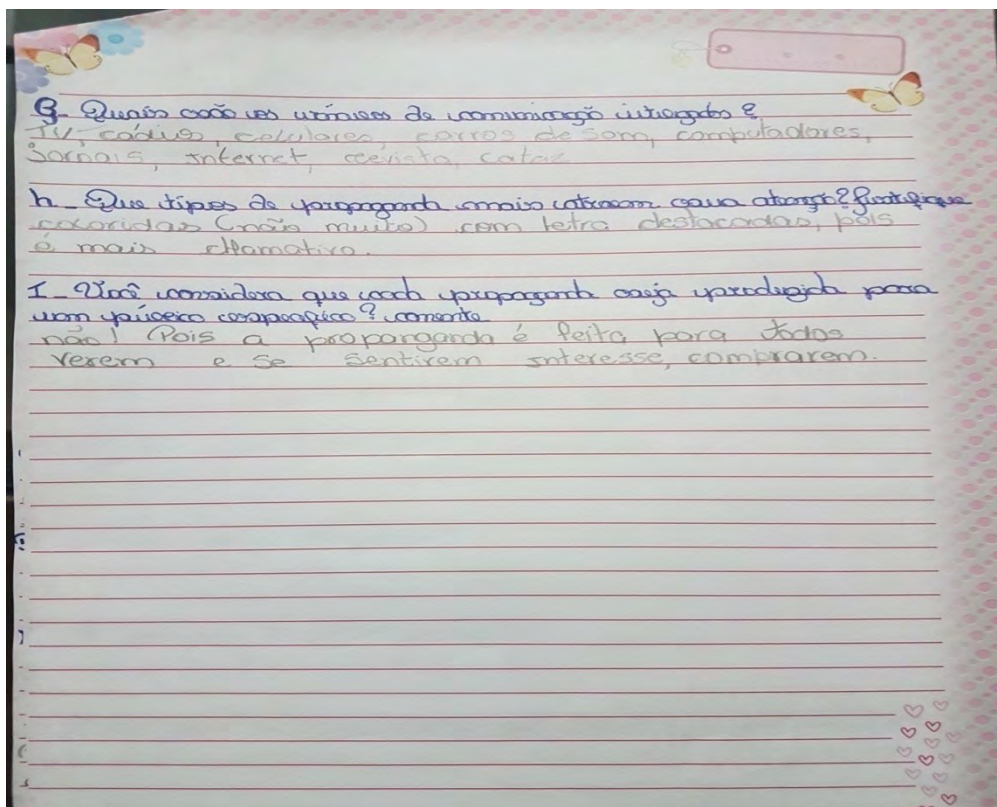 G- Quais são os veículos de comunicação utilizados?
TV, rádios, celulares, carros de som, computadores,
Jornais, Internet, revista, cataz
h- Que tipos de propaganda mais atraem sua atenção? Justifique
coloridas (não muito) com letra destacadas, pois
é mais chamativo.
I- Você considera que cada propaganda seja produzida para
um público específico? comente
não! Pois a propoganda é feita para todos
verem e se sentirem interesse, comprarem.